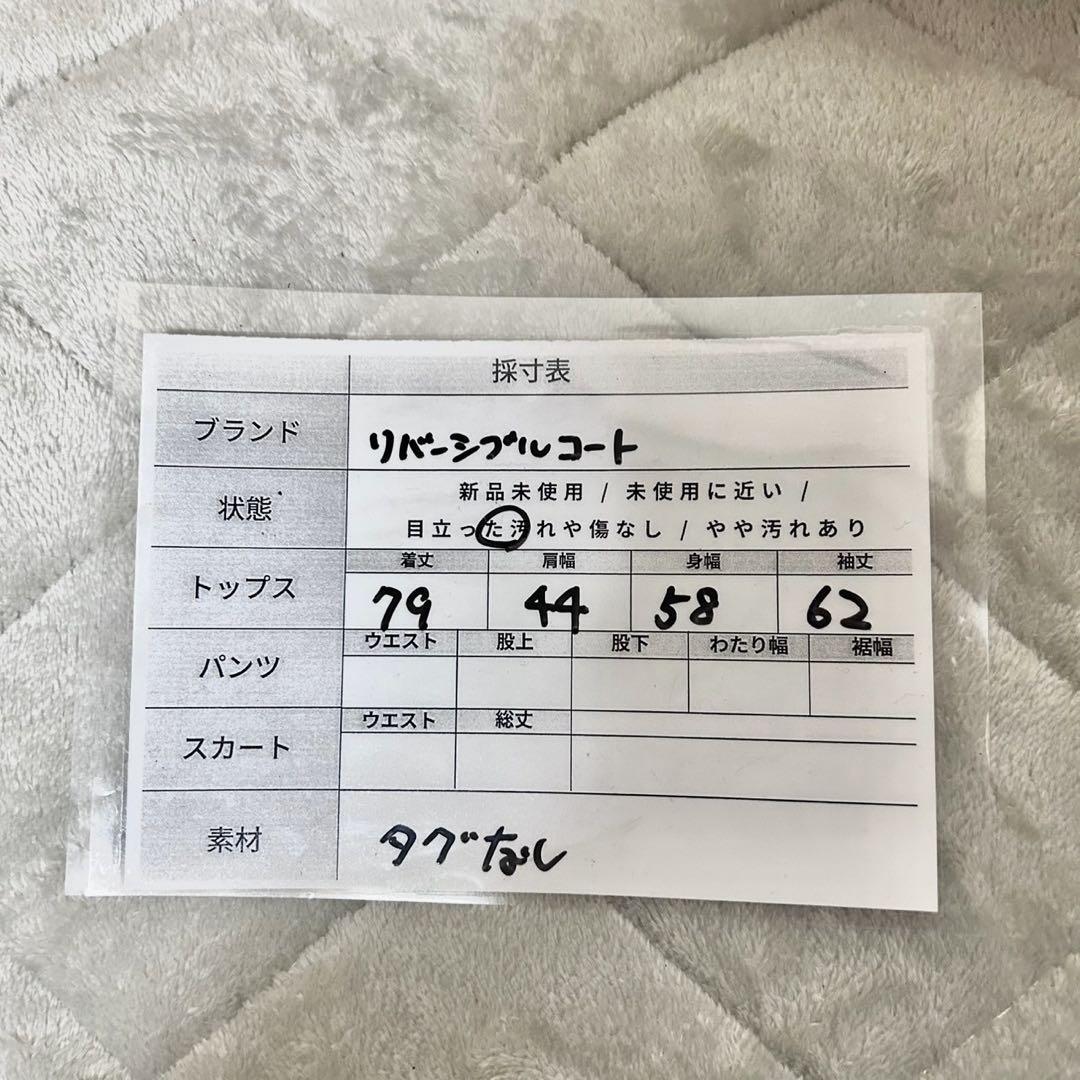 採寸表
ブランド リバーシブルコート
状態 新品未使用 / 未使用に近い /
目立った汚れや傷なし / やや汚れあり
トップス 着丈 肩幅 身幅 袖丈
79 44 58 62
パンツ ウエスト 股上 股下 わたり幅 裾幅
スカート ウエスト 総丈
素材 タグなし